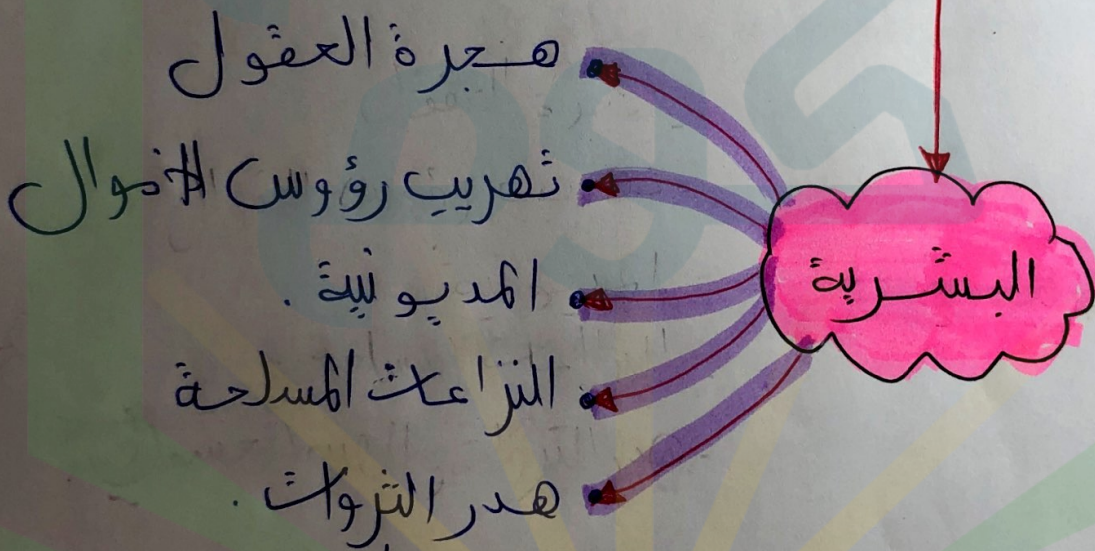 البشرية
هجرة العقول
تهريب رؤوس الاموال
المديونية .
النزاعات المسلحة
هدر الثروات .